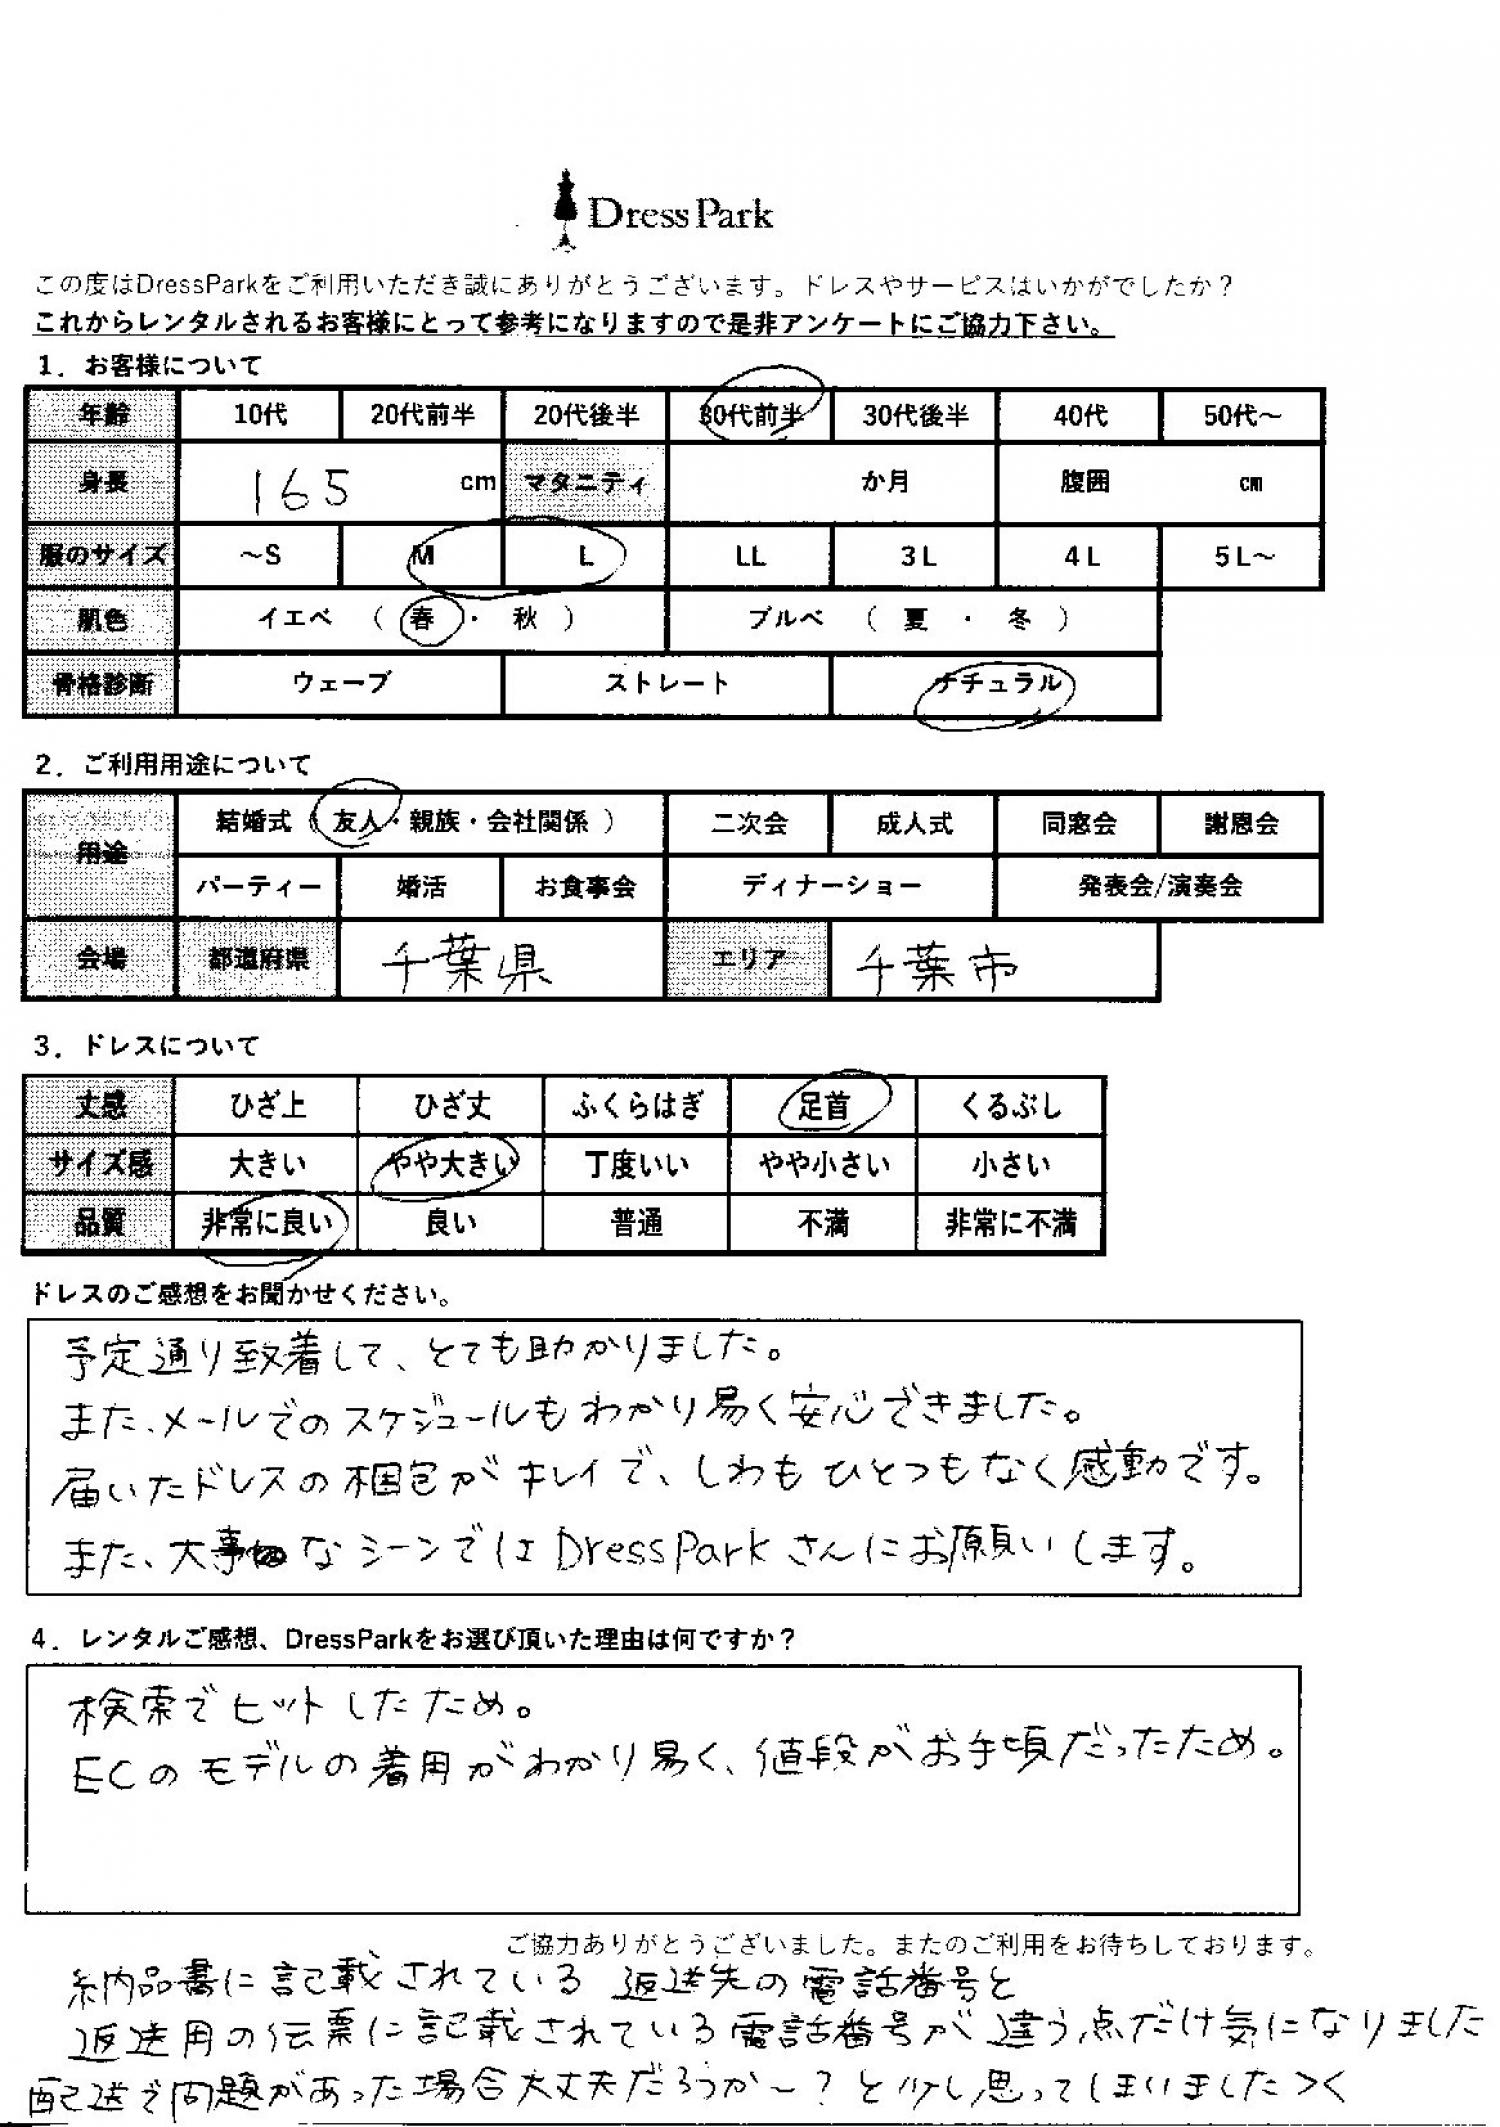 DressPark
この度はDressParkをご利用いただき誠にありがとうございます。ドレスやサービスはいかがでしたか？
これからレンタルされるお客様にとって参考になりますので是非アンケートにご協力下さい。
1．お客様について
年齢 10代 20代前半 20代後半 30代前半 30代後半 40代 50代～
身長 165 cm マタニティ か月 腹囲 cm
服のサイズ ～S M L LL 3L 4L 5L～
肌色 イエベ （ 春 ・ 秋 ） ブルベ （ 夏 ・ 冬 ）
骨格診断 ウェーブ ストレート ナチュラル
2．ご利用用途について
用途 結婚式（ 友人・親族・会社関係 ） 二次会 成人式 同窓会 謝恩会
パーティー 婚活 お食事会 ディナーショー 発表会/演奏会
会場 都道府県 千葉県 エリア 千葉市
3．ドレスについて
丈感 ひざ上 ひざ丈 ふくらはぎ 足首 くるぶし
サイズ感 大きい やや大きい 丁度いい やや小さい 小さい
品質 非常に良い 良い 普通 不満 非常に不満
ドレスのご感想をお聞かせください。
予定通り到着して、とても助かりました。
また、メールでのスケジュールもわかり易く安心できました。
届いたドレスの梱包がキレイで、しわもひとつもなく感動です。
また、大事なシーンではDressParkさんにお願いします。
4．レンタルご感想、DressParkをお選び頂いた理由は何ですか？
検索でヒットしたため。
ECのモデルの着用がわかり易く、値段がお手頃だったため。
ご協力ありがとうございました。またのご利用をお待ちしております。
納品書に記載されている返送先の電話番号と
返送用の伝票に記載されている電話番号が違う点だけ気になりました
配送で問題があった場合大丈夫だろうか～？と少し思ってしまいました><